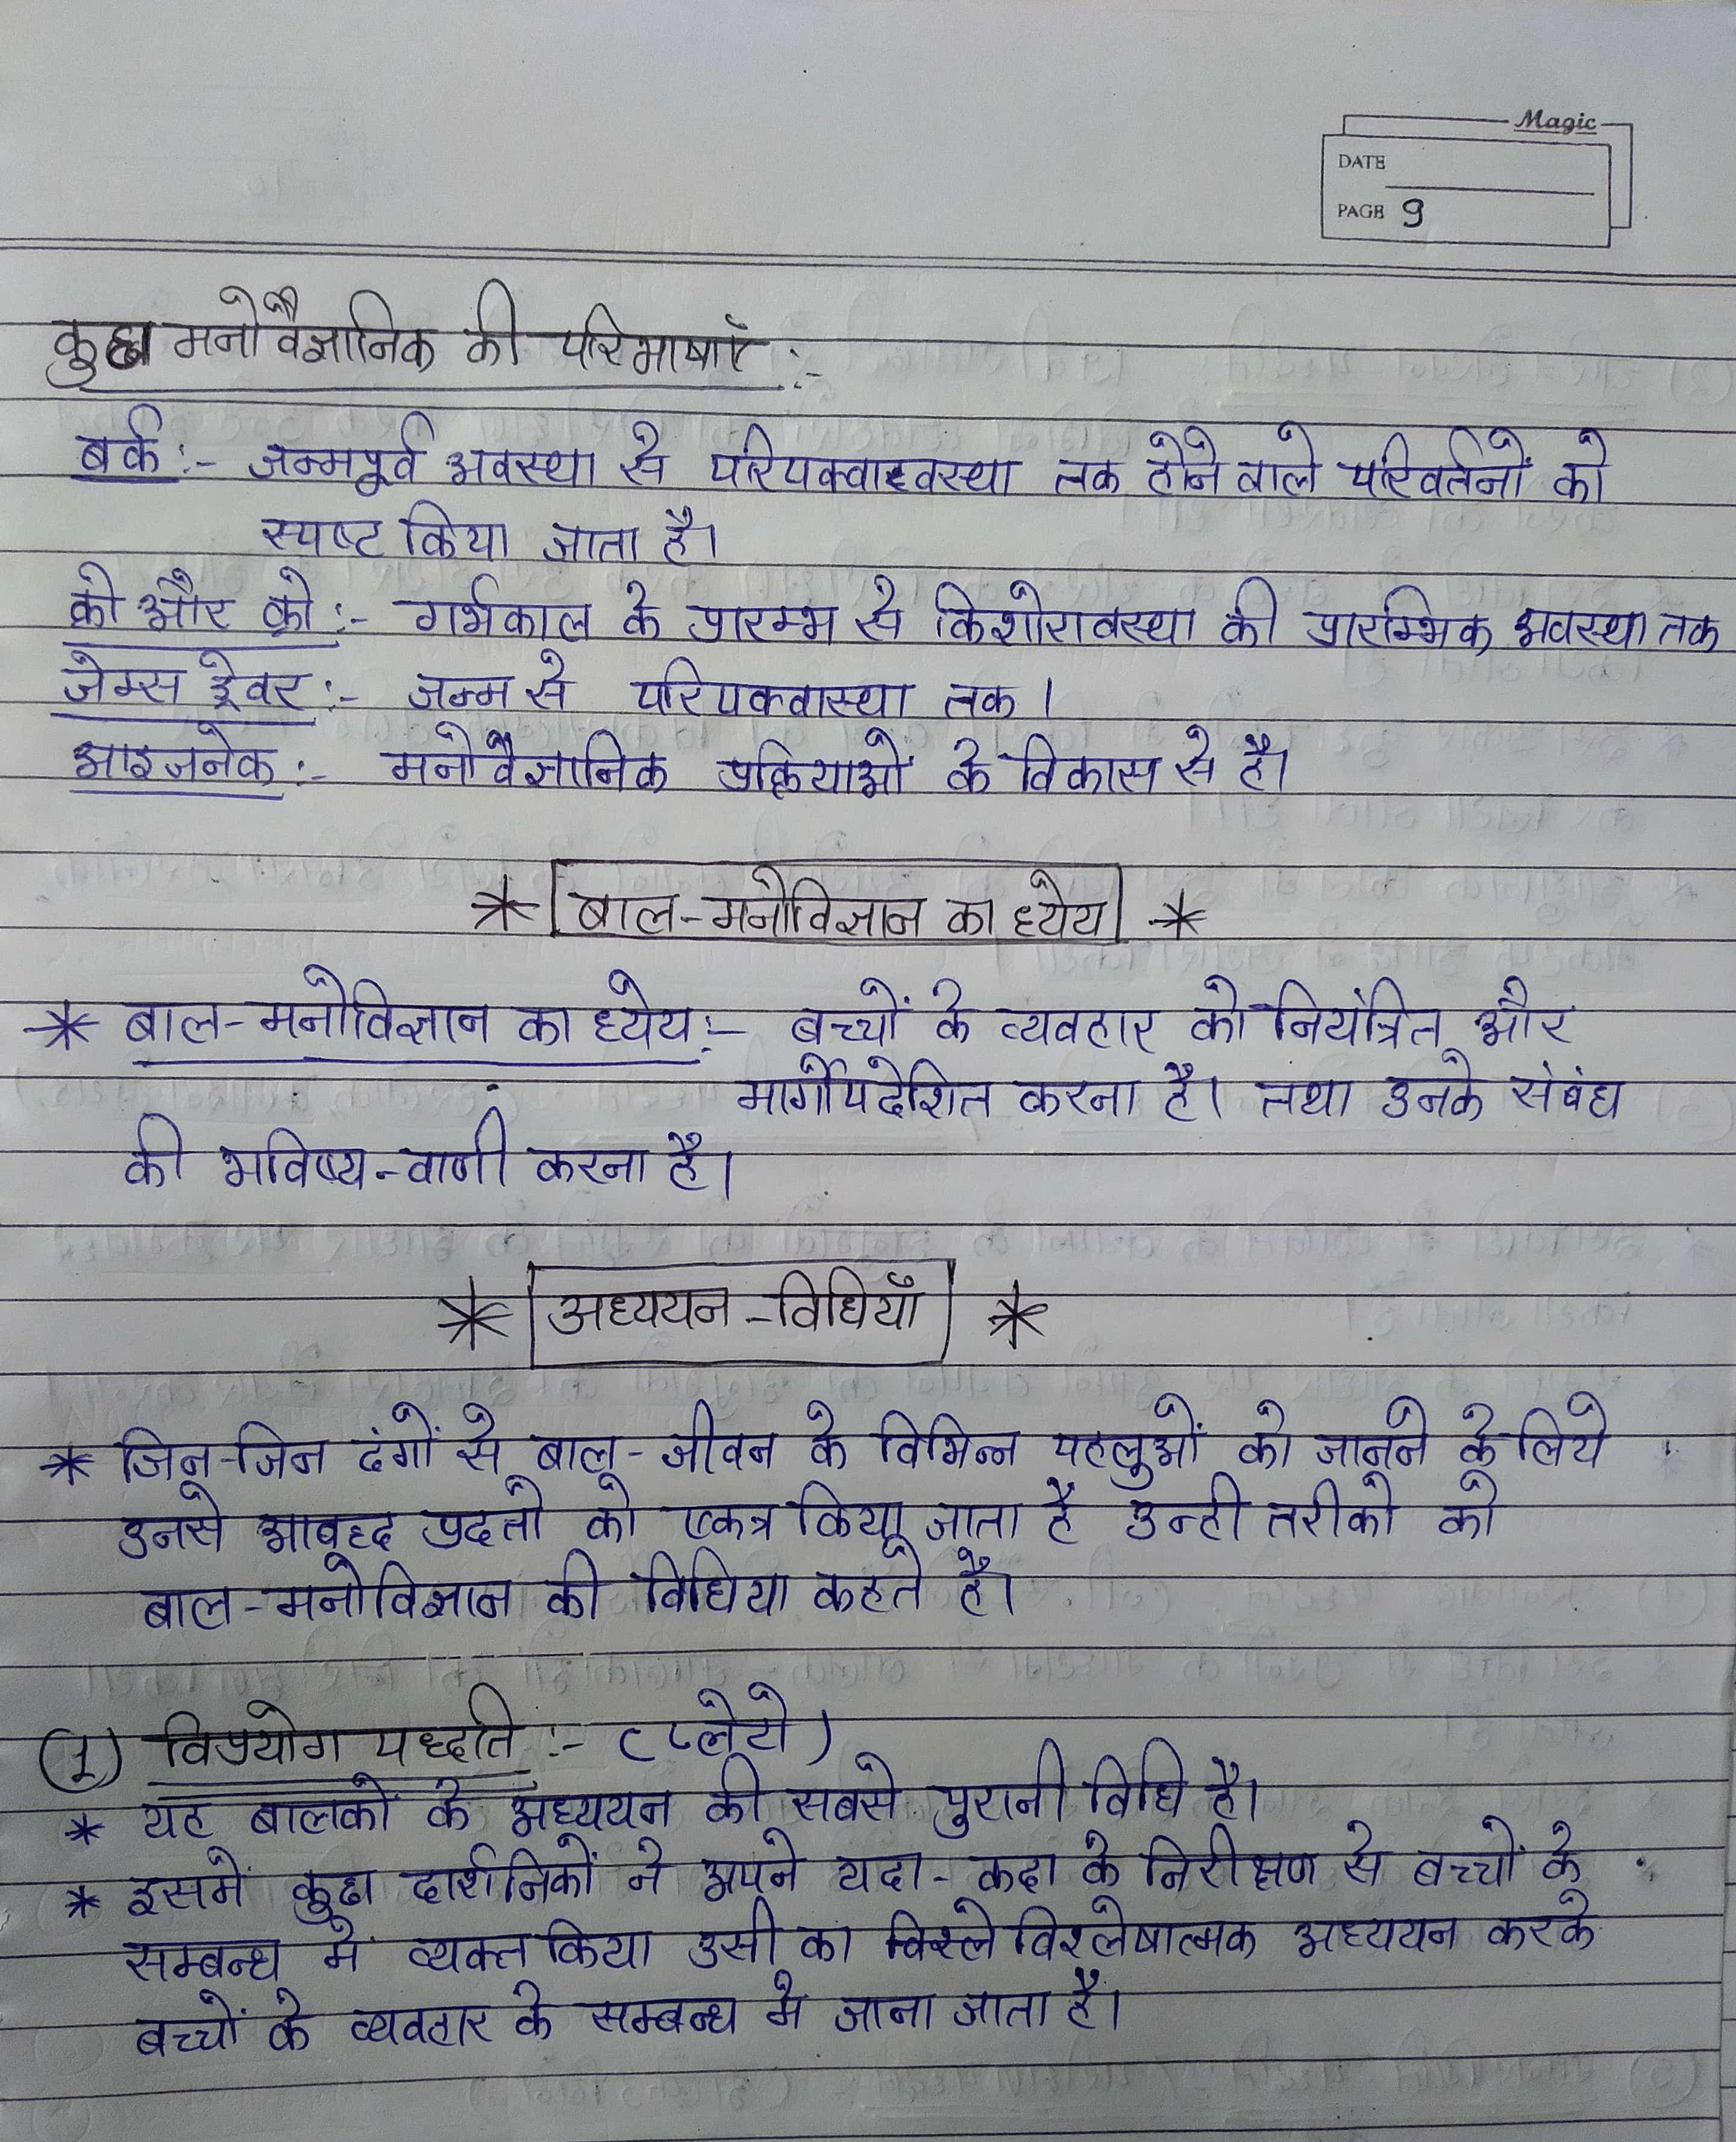 Magic
DATE
PAGE 9
कुछ मनोवैज्ञानिक की परिभाषाएँ :-
बर्क :- जन्मपूर्व अवस्था से परिपक्वाहवस्था तक होने वाले परिवर्तनों को
स्पष्ट किया जाता है।
क्रो और क्रो :- गर्भकाल के प्रारम्भ से किशोरावस्था की प्रारम्भिक अवस्था तक
जेम्स ड्रेवर :- जन्म से परिपक्वास्था तक।
आइजनेक :- मनोवैज्ञानिक प्रक्रियाओं के विकास से है।
* बाल-मनोविज्ञान का ध्येय *
* बाल-मनोविज्ञान का ध्येय :- बच्चों के व्यवहार को नियंत्रित और
मार्गोपदेशित करना है। तथा उनके संबंध
की भविष्य-वाणी करना है।
* अध्ययन-विधियाँ *
* जिन-जिन ढंगों से बाल-जीवन के विभिन्न पहलुओं को जानने के लिये
उनसे आबद्ध प्रदतो को एकत्र किया जाता है उन्ही तरीको को
बाल-मनोविज्ञान की विधिया कहते है।
(1) विप्रयोग पध्दति :- (प्लेटो)
* यह बालकों के अध्ययन की सबसे पुरानी विधि है।
* इसमें कुछ दार्शनिकों ने अपने यदा-कदा के निरीक्षण से बच्चों के
सम्बन्ध में व्यक्त किया उसी का विश्ले विश्लेषात्मक अध्ययन करके
बच्चों के व्यवहार के सम्बन्ध मे जाना जाता है।